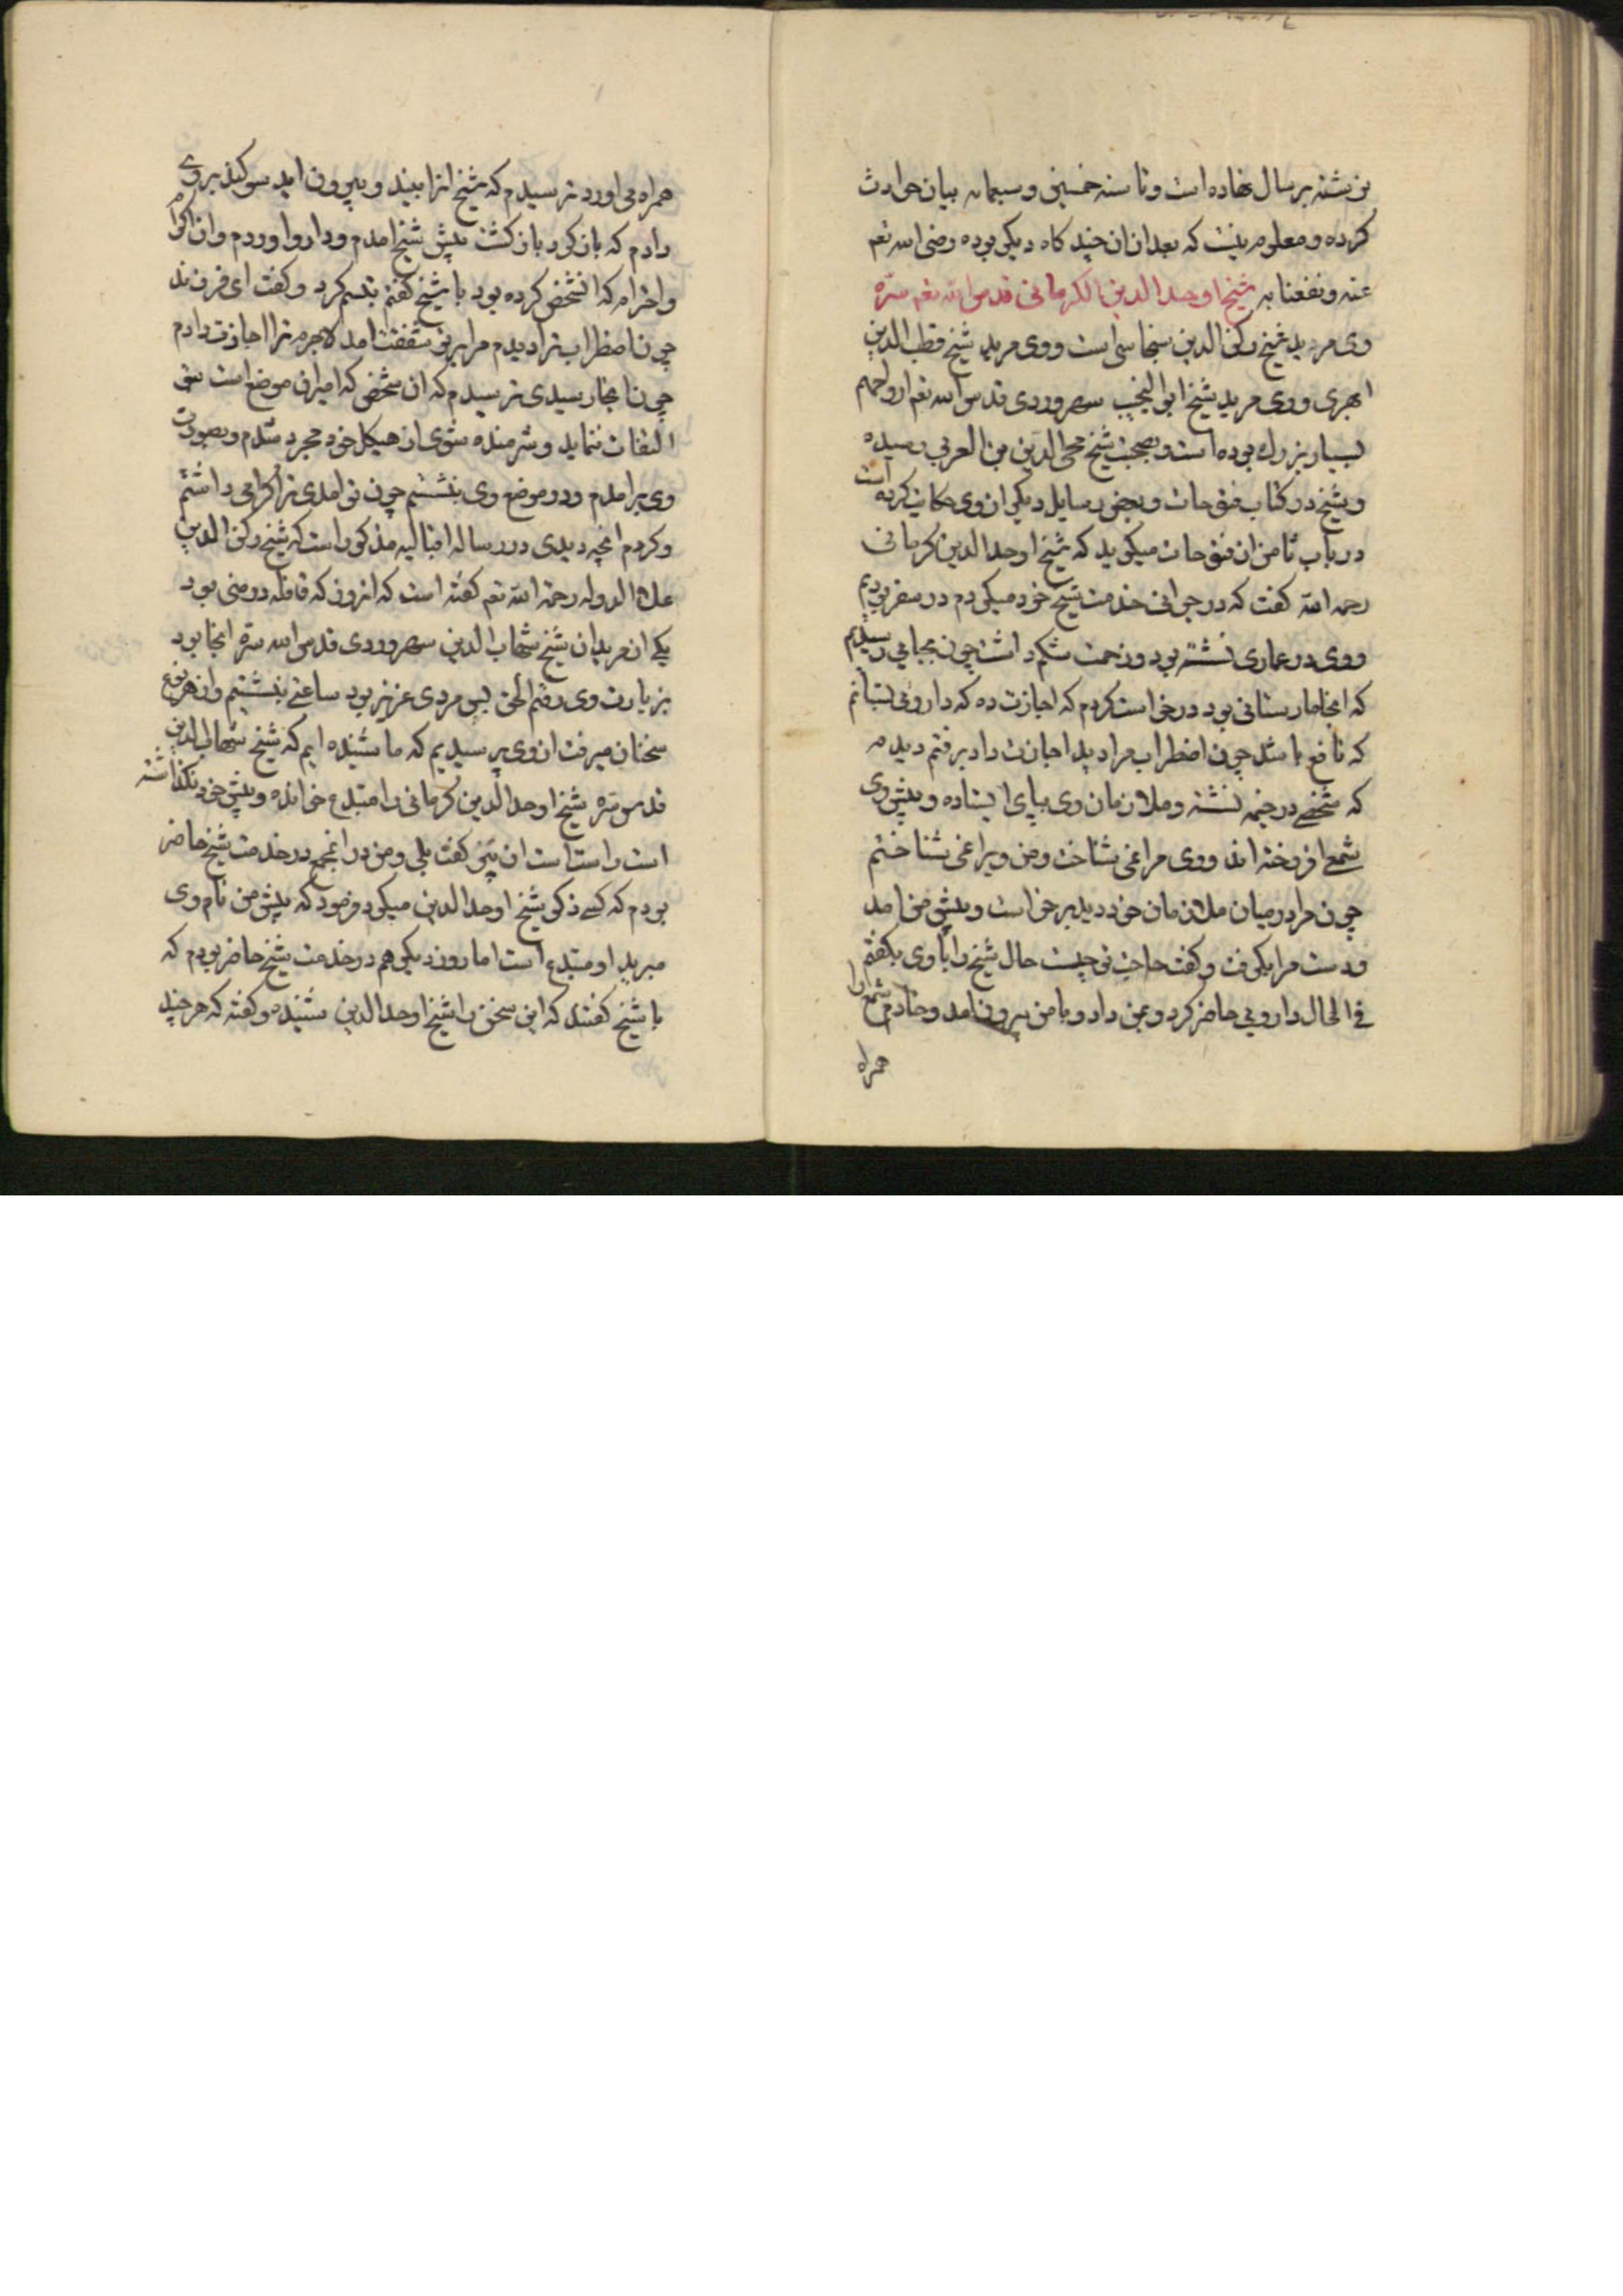 نوشته بر سال نهاده است و تا سنه خمسین و سبعمایه بیان حوادث
کرده و معلوم نیست که بعد ازان چند کاه دیکر بوده رضی الله تعم
عنه و نفعنا به شیخ اوحد الدین الکرمانی قدس الله تعم سره
وی مرید شیخ رکن الدین سنجاسی است و وی مرید شیخ قطب الدین
ابهری و وی مرید شیخ ابو النجیب سهروردی قدس الله تعم ارواحهم
بسیار بزرك بوده است و بصحبت شیخ محی الدین بن العربی رسیده
و شیخ در کتاب فتوحات و بعضی رسایل دیکر از وی حکایت کرده است
در باب ثامن از فتوحات میکوید که شیخ اوحد الدین کرمانی
رحمه الله کفت که در جوانی خدمت شیخ خود میکردم در سفر بودیم
و وی در عماری نشسته بود و زحمت شکم داشت چون بجایی رسیدیم
که انجا مارستانی بود درخواست کردم که اجازت ده که دارویی بستانم
که نافع باشد چون اضطراب مرا دید اجازت داد برفتم دیدم
که شخصی در خیمه نشسته و ملازمان وی بپای ایستاده و پیش وی
شمع افروخته اند و وی مرا نمی شناخت و من ویرا نمی شناختم
چون مرا در میان ملازمان خود دید برخواست و پیش من امد
و دست مرا بکرفت و کفت حاجت تو چیست حال شیخ را با وی بکفتم
فی الحال دارویی حاضر کرد و بمن داد و با من بیرون امد و خادم شمع را
همراه
همراه می اورد ترسیدم که شیخ انرا بیند و بیرون اید سوکند بر وی
دادم که باز کرد باز کشت پیش شیخ امدم و دارو اوردم و ان اکرام
و احترام که انشخص کرده بود با شیخ کفتم تبسم کرد و کفت ای فرزند
چون اضطراب ترا دیدم مرا بر تو شفقت امد لاجرم ترا اجازت دادم
چون انجا رسیدی ترسیدم که ان شخص که امیر ان موضع است بتو
التفات ننماید و شرمنده شوی از هیکل خود مجرد شدم و بصورت
وی برامدم و در موضع وی بنشستم چون تو امدی ترا کرامی داشتم
و کردم انچه دیدی در رساله اقبالیه مذکور است که شیخ رکن الدین
علاء الدوله رحمه الله تعم کفته است که انروز که قافله در منی بود
یکی از مریدان شیخ شهاب الدین سهروردی قدس الله سره انجا بود
بزیارت وی رفتم الحق بس مردی عزیز بود ساعتی بنشستیم و از هر نوع
سخنان میرفت از وی پرسیدیم که ما شنیده ایم که شیخ شهاب الدین
قدس سره شیخ اوحد الدین کرمانی را مبتدع خوانده و پیش خود نکذاشته
است راست است ان پیر کفت بلی و من در انجمع در خدمت شیخ حاضر
بودم که کسی ذکر شیخ اوحد الدین میکرد فرمود که پیش من نام وی
مبرید او مبتدع است اما روز دیکر هم در خدمت شیخ حاضر بودم که
با شیخ کفتند که این سخن را شیخ اوحد الدین شنیده و کفته که هر چند